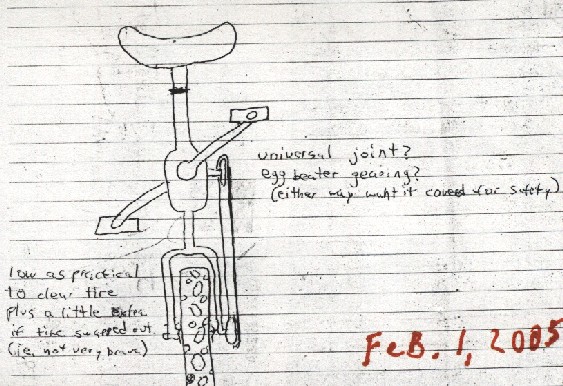 universal joint?
egg beater gearing?
(either way want it covered for safety)
low as practical
to clear tire
plus a little extra
if tire swapped out
(ie. not very brave)
FEB. 1, 2005